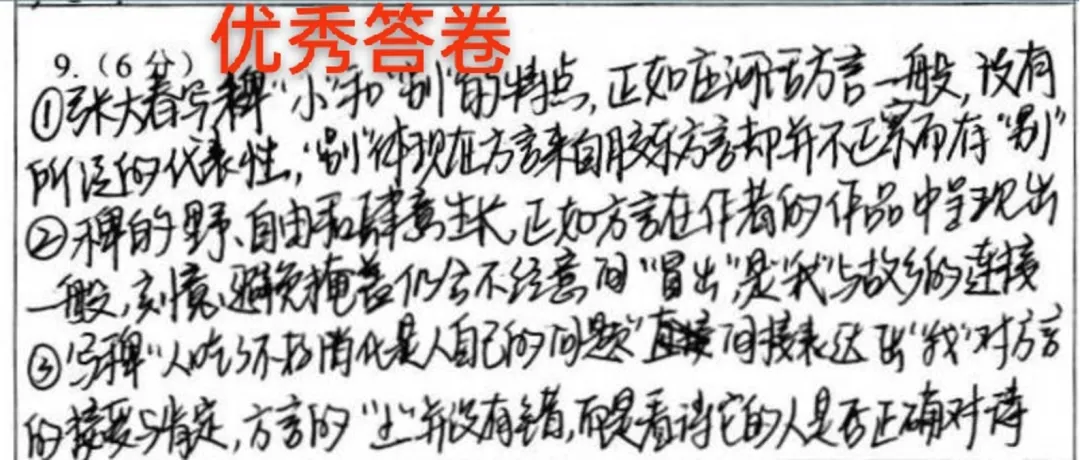 优秀答卷
9.（6分）
①张大春写稗"小"和"别"的特点，正如庄河话方言一般，没有
所谓的代表性，"别"体现在方言来自胶东方言却并不正宗而存"别"
②稗的野、自由和肆意生长，正如方言在作者的作品中呈现出
一般，刻意避免掩盖仍会不经意间"冒出"，是"我"与故乡的连接
③写稗"人吃了不好消化是人自己的问题"间接表达出"我"对方言
的接受与肯定，方言的"土"并没有错，而是看待它的人是否正确对待